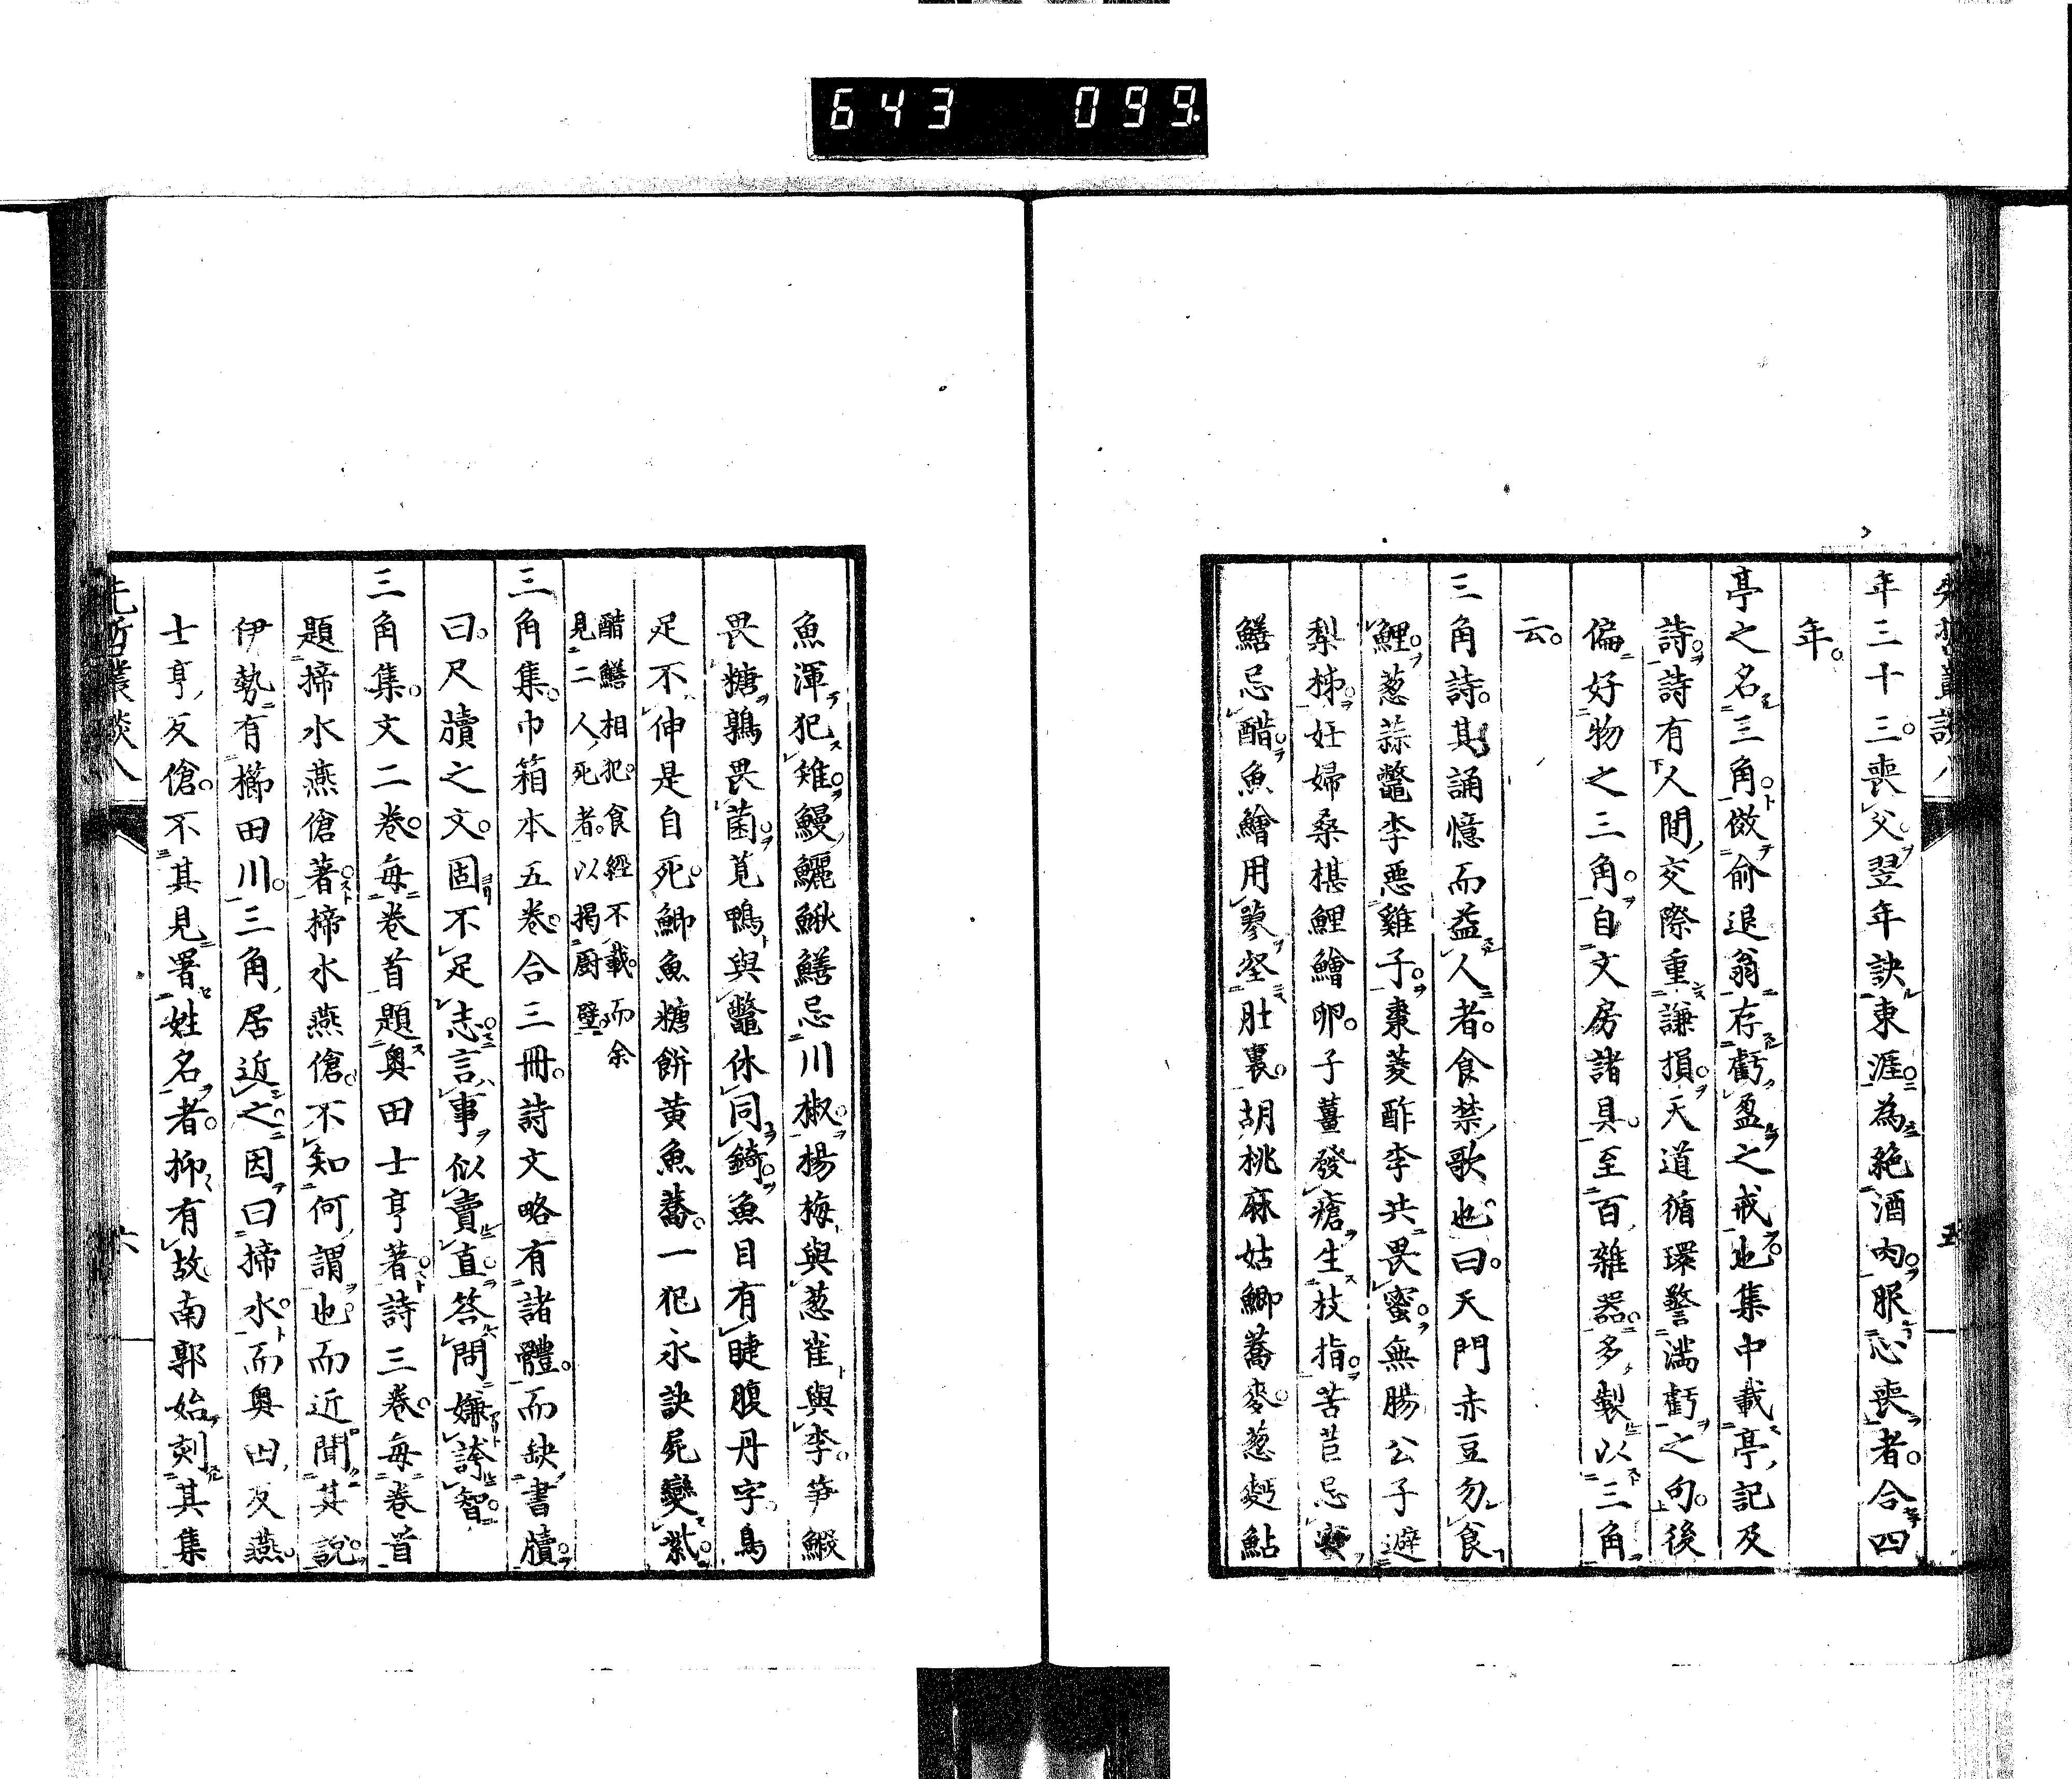 643 099.
先哲叢談八
五
年三十三。喪父。翌年訣東涯。為絶酒肉。服心喪者。合四
年。
亭之名三角。倣俞退翁存虧盈之戒也。集中載亭記及
詩。詩有人間交際重謙損。天道循環警滿虧之句。後
偏好物之三角。自文房諸具。至百雜器。多製以三角
云。
三角詩。其誦憶而益人者。食禁歌也。曰。天門赤豆勿食
鯉。葱蒜鼈李悪雞子。棗菱酢李共畏蜜。無腸公子避
梨柹。妊婦桑椹鯉鱠卵。子薑發瘡生枝指。苦苣忌蜜
鱔忌醋。魚鱠用蓼堅肚裏。胡桃麻姑鯽蕎麥。葱麪鮎
魚渾犯雉。鰻鱺鰍鱔忌川椒。楊梅與葱雀與李。笋鰕
畏糖鶉畏菌。莧鴨與鼈休同錡。魚目有睫腹丹字。鳥
足不伸是自死。鯽魚糖餅黄魚蕎。一犯永訣屍變紫。
醋鱔相犯。食經不載。而余
見二人死者。以掲厨壁。
三角集。巾箱本五卷。合三冊。詩文略有諸體。而缺書牘。
曰。尺牘之文。固不足志。言事似賣直。答問嫌誇智。
三角集。文二卷。毎卷首題奥田士亨著。詩三卷。毎卷首
題揥水燕傖著。揥水燕傖。不知何謂也。而近聞其說。
伊勢有櫛田川。三角居近之。因曰揥水。而奥曰反燕。
士亨反傖。不其見署姓名者。抑有故。南郭始刻其集
先哲叢談八
六